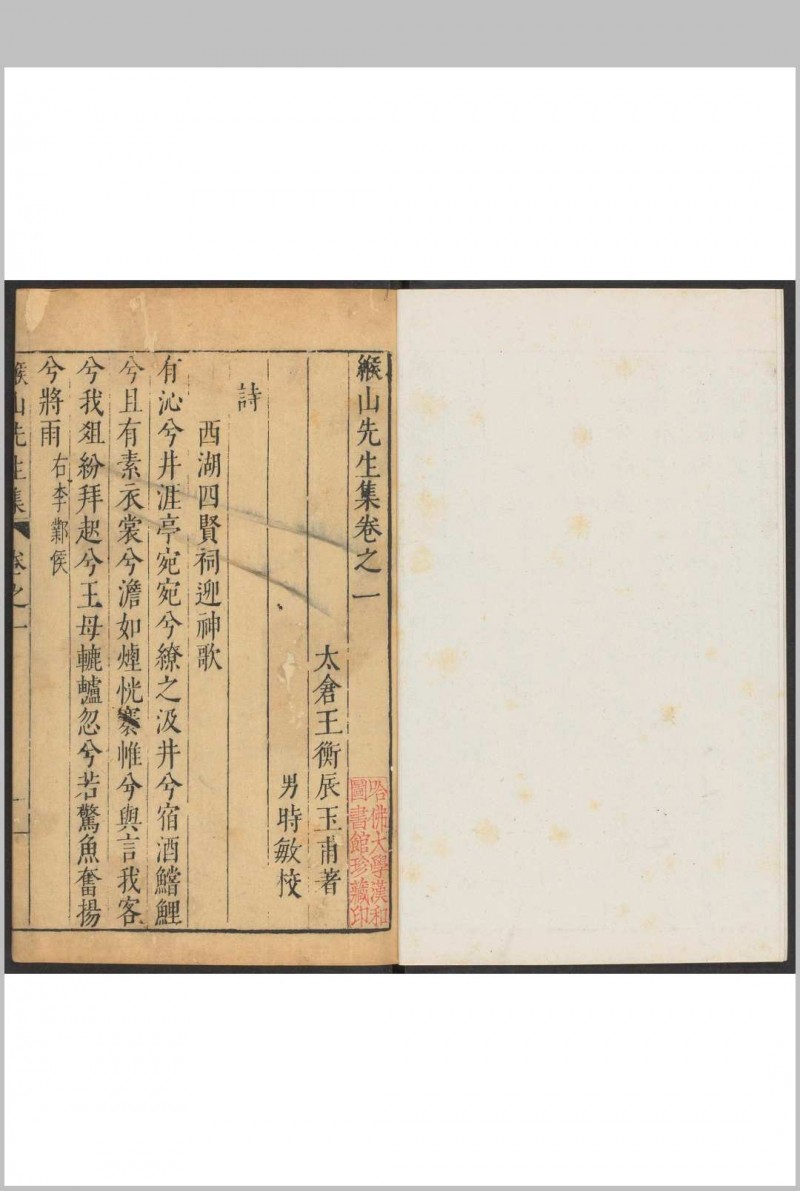 緱山先生集卷之一
太倉王衡辰玉甫著
男時敏校
詩
西湖四賢祠迎神歌
有沁兮井涯亭宛宛兮繚之汲井兮宿酒鱠鯉
兮且有素衣裳兮澹如煙恍褰帷兮與言我客
兮我俎紛拜起兮王母轆轤忽兮若驚魚奮揚
兮將雨 右李鄴侯
緱山先生集 卷之一 一
哈佛大學漢和
圖書館珍藏印